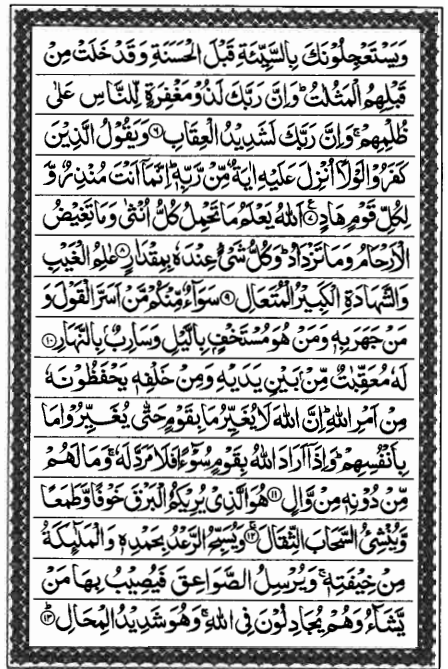 وَيَسْتَعْجِلُوْنَكَ بِالسَّيِّئَةِ قَبْلَ الْحَسَنَةِ وَقَدْ خَلَتْ مِنْ
قَبْلِهِمُ الْمَثُلٰتُ ؕ وَاِنَّ رَبَّكَ لَذُوْ مَغْفِرَةٍ لِّلنَّاسِ عَلٰى
ظُلْمِهِمْ ۚ وَاِنَّ رَبَّكَ لَشَدِيْدُ الْعِقَابِ ۶ وَيَقُوْلُ الَّذِيْنَ
كَفَرُوْا لَوْلَاۤ اُنْزِلَ عَلَيْهِ اٰيَةٌ مِّنْ رَّبِّهٖ ؕ اِنَّمَاۤ اَنْتَ مُنْذِرٌ وَّ
لِكُلِّ قَوْمٍ هَادٍ ۷ اَللّٰهُ يَعْلَمُ مَا تَحْمِلُ كُلُّ اُنْثٰى وَمَا تَغِيْضُ
الْاَرْحَامُ وَمَا تَزْدَادُ ؕ وَكُلُّ شَىْءٍ عِنْدَهٗ بِمِقْدَارٍ ۸ عٰلِمُ الْغَيْبِ
وَالشَّهَادَةِ الْكَبِيْرُ الْمُتَعَالِ ۹ سَوَآءٌ مِّنْكُمْ مَّنْ اَسَرَّ الْقَوْلَ وَ
مَنْ جَهَرَ بِهٖ وَمَنْ هُوَ مُسْتَخْفٍۭ بِالَّيْلِ وَسَارِبٌۢ بِالنَّهَارِ ۱۰
لَهٗ مُعَقِّبٰتٌ مِّنْۢ بَيْنِ يَدَيْهِ وَمِنْ خَلْفِهٖ يَحْفَظُوْنَهٗ
مِنْ اَمْرِ اللّٰهِ ؕ اِنَّ اللّٰهَ لَا يُغَيِّرُ مَا بِقَوْمٍ حَتّٰى يُغَيِّرُوْا مَا
بِاَنْفُسِهِمْ ؕ وَاِذَاۤ اَرَادَ اللّٰهُ بِقَوْمٍ سُوْٓءًا فَلَا مَرَدَّ لَهٗ ۚ وَمَا لَهُمْ
مِّنْ دُوْنِهٖ مِنْ وَّالٍ ۱۱ هُوَ الَّذِيْ يُرِيْكُمُ الْبَرْقَ خَوْفًا وَّطَمَعًا
وَّيُنْشِئُ السَّحَابَ الثِّقَالَ ۱۲ وَيُسَبِّحُ الرَّعْدُ بِحَمْدِهٖ وَالْمَلٰٓئِكَةُ
مِنْ خِيْفَتِهٖ ۚ وَيُرْسِلُ الصَّوَاعِقَ فَيُصِيْبُ بِهَا مَنْ
يَّشَآءُ وَهُمْ يُجَادِلُوْنَ فِى اللّٰهِ ۚ وَهُوَ شَدِيْدُ الْمِحَالِ ۱۳